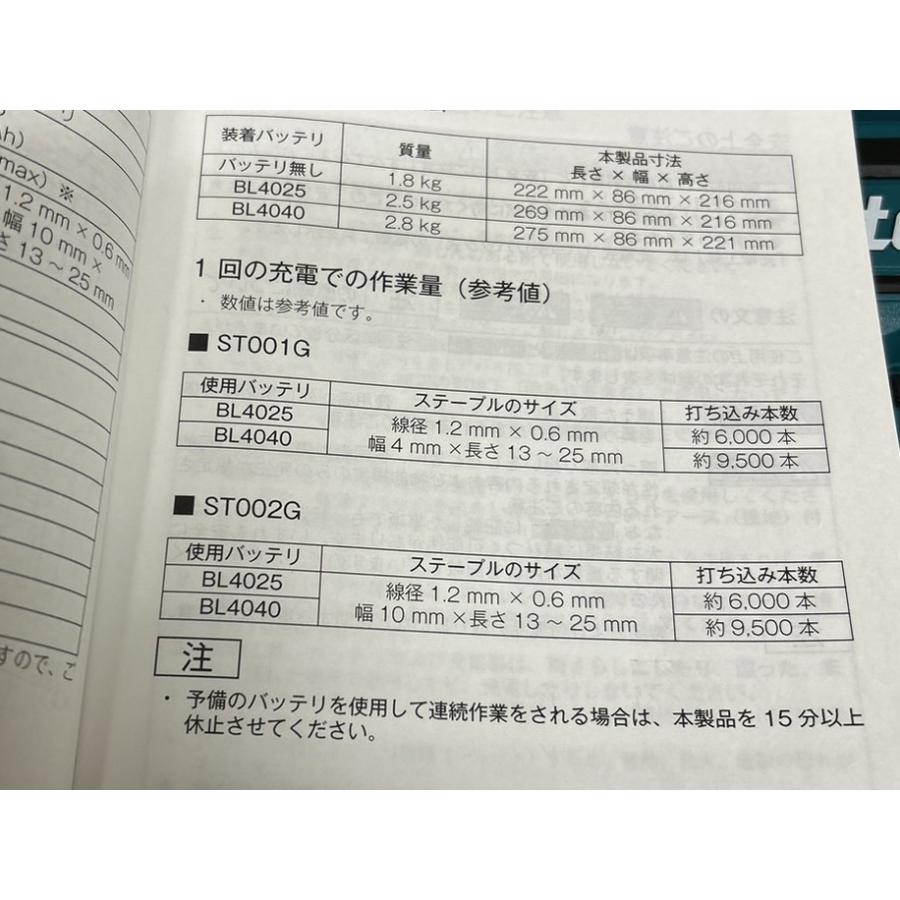 h)
max) ※
1.2 mm × 0.6 mm
幅 10 mm ×
長さ 13 ~ 25 mm
すので、こ
装着バッテリ 質量 本製品寸法
長さ × 幅 × 高さ
バッテリ無し 1.8 kg 222 mm × 86 mm × 216 mm
BL4025 2.5 kg 269 mm × 86 mm × 216 mm
BL4040 2.8 kg 275 mm × 86 mm × 221 mm
1 回の充電での作業量（参考値）
・ 数値は参考値です。
■ ST001G
使用バッテリ ステープルのサイズ 打ち込み本数
BL4025 線径 1.2 mm × 0.6 mm 約 6,000 本
BL4040 幅 4 mm ×長さ 13 ~ 25 mm 約 9,500 本
■ ST002G
使用バッテリ ステープルのサイズ 打ち込み本数
BL4025 線径 1.2 mm × 0.6 mm 約 6,000 本
BL4040 幅 10 mm ×長さ 13 ~ 25 mm 約 9,500 本
注
・ 予備のバッテリを使用して連続作業をされる場合は、本製品を 15 分以上
休止させてください。